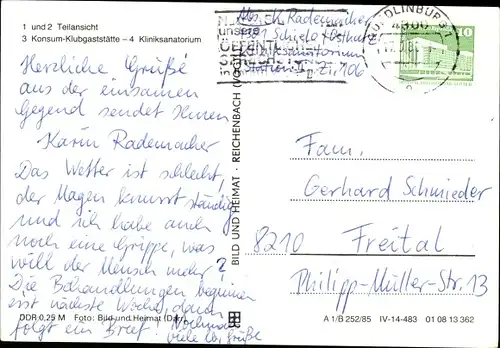 1 und 2 Teilansicht
3 Konsum-Klubgaststätte – 4 Kliniksanatorium
Herzliche Grüße
aus der einsamen
Gegend sendet Ihnen
Karin Rademacher
Das Wetter ist schlecht,
der Magen knurrt ständig
und ich habe auch
noch eine Grippe, was
will der Mensch mehr?
Die Behandlungen beginnen
erst nächste Woche, dann
folgt ein Brief! Nochmal
viele lb. Grüße
DDR 0,25 M Foto: Bild und Heimat
BILD UND HEIMAT · REICHENBACH (VOGTL)
Abs. K. Rademacher
Schielo
Station II Zi. 106
QUEDLINBURG 1
4300
10
Fam.
Gerhard Schmieder
8210 Freital
Philipp-Müller-Str. 13
A 1/B 252/85 IV-14-483 01 08 13 362